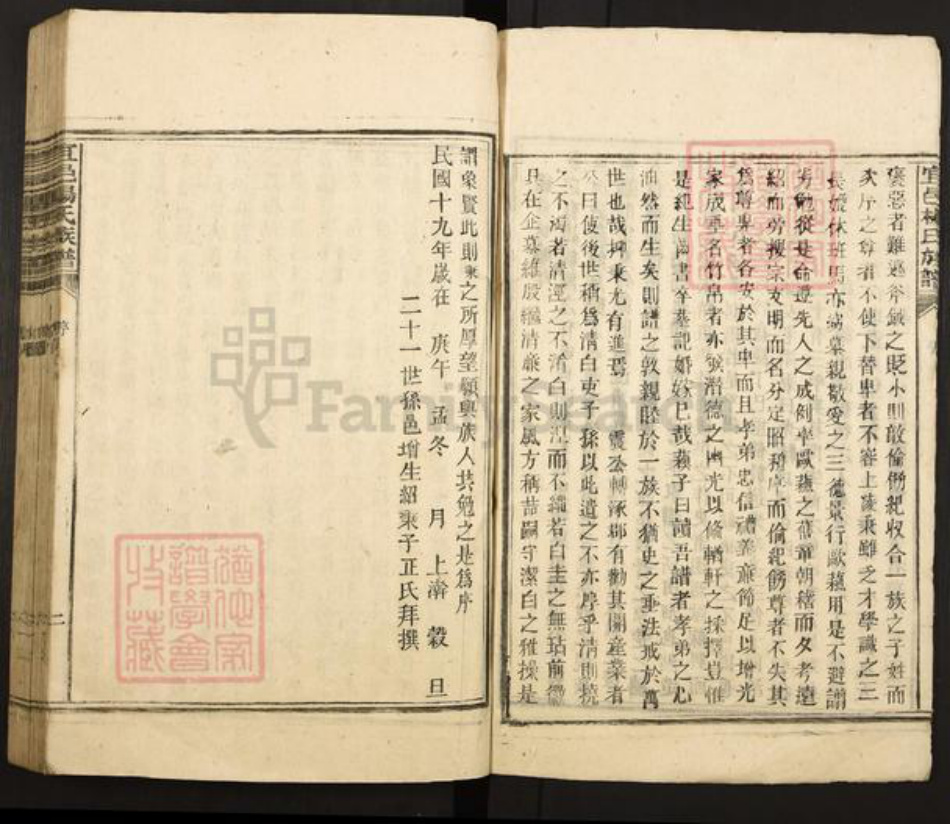 宜邑楊氏族譜
褒惡者難逃斧鉞之貶小則敵倫傷紀收合一族之子姓而
次序之尊者不使下替卑者不容上凌秉雖乏才學識之三
長媛休班馬亦病慕親敬愛之三德景行歐蘇用是不避譾
劣勉從是命遵先人之成例率歐蘇之舊章朝稽而夕考遠
紹而旁搜宗支明而名分定昭穆序而倫紀飭尊者不失其
為尊卑者各安於其卑而且孝弟忠信禮義廉節足以增光
家成專名竹帛者亦發潛德之幽光以俻輶軒之採擇豈惟
是紀生卒書卒墓記婚嫁已哉蘇子曰讀吾譜者孝弟之心
油然而生矣則譜之敦親睦於一族不猶史之垂法戒於萬
世也哉抑秉尤有進焉 震公轉涿郡有勸其開產業者
公曰使後世稱為清白吏子孫以此遺之不亦厚乎清則撓
之不濁若清涇之不淆白則涅而不緇若白圭之無玷前徽
具在企慕維殷繼清廉之家風方稱喆嗣守潔白之雅操是
謂象賢此則秉之所厚望願與族人共勉之是為序
民國十九年歲在 庚午 孟冬 月 上澣 穀 旦
二十一世孫邑增生紹秉子正氏拜撰
宜邑楊氏族譜
序
二
FamilySearch